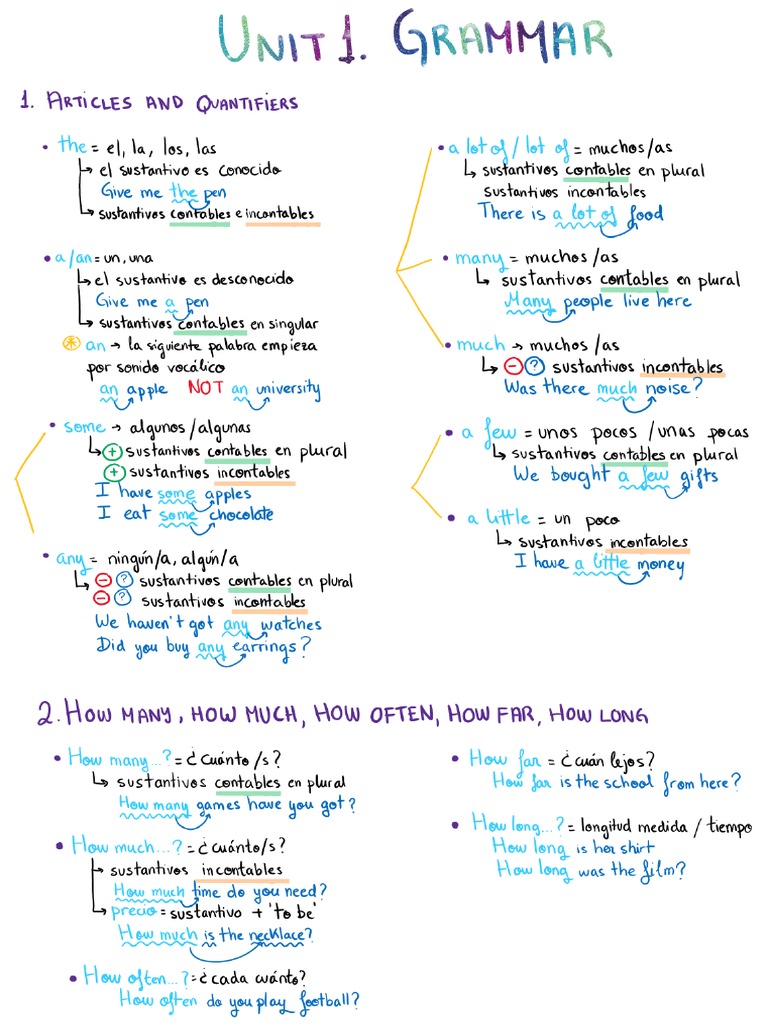 UNIT 1. GRAMMAR
1. ARTICLES AND QUANTIFIERS
• the = el, la, los, las
↳ el sustantivo es conocido
Give me the pen
↳ sustantivos contables e incontables
• a/an = un, una
↳ el sustantivo es desconocido
Give me a pen
↳ sustantivos contables en singular
* an → la siguiente palabra empieza
por sonido vocálico
an apple NOT an university
• some → algunos/algunas
↳ + sustantivos contables en plural
+ sustantivos incontables
I have some apples
I eat some chocolate
• any = ningún/a, algún/a
↳ - ? sustantivos contables en plural
- ? sustantivos incontables
We haven't got any watches
Did you buy any earrings?
• a lot of / lot of = muchos/as
↳ sustantivos contables en plural
sustantivos incontables
There is a lot of food
• many = muchos/as
↳ sustantivos contables en plural
Many people live here
• much → muchos/as
↳ - ? sustantivos incontables
Was there much noise?
• a few = unos pocos /unas pocas
↳ sustantivos contables en plural
We bought a few gifts
• a little = un poco
↳ sustantivos incontables
I have a little money
2. HOW MANY, HOW MUCH, HOW OFTEN, HOW FAR, HOW LONG
• How many...? = ¿cuánto/s?
↳ sustantivos contables en plural
How many games have you got?
• How much...? = ¿cuánto/s?
↳ sustantivos incontables
How much time do you need?
↳ precio = sustantivo + 'to be'
How much is the necklace?
• How often...? = ¿cada cuánto?
How often do you play football?
• How far = ¿cuán lejos?
How far is the school from here?
• How long...? = longitud medida / tiempo
How long is her shirt
How long was the film?